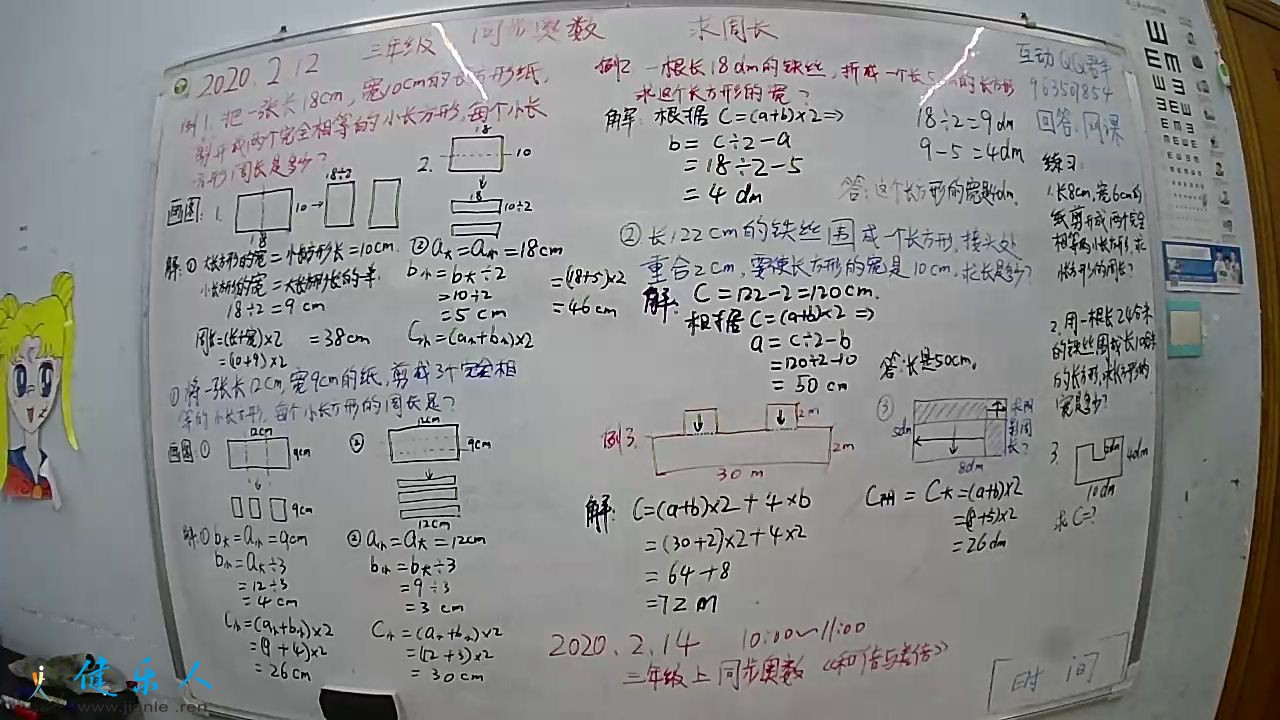 2020.2.12
三年级 同步奥数 求周长
例1. 把一张长18cm, 宽10cm的长方形纸,
剪开成两个完全相等的小长方形,每个小长
方形周长是多少?
画图: 1.
10→
18
18÷2
2.
18
10
18
10÷2
解:① 大长方形的宽=小长方形长=10cm.
小长方形的宽=大长方形长的一半.
18÷2=9cm
周长=(长+宽)×2 =38cm
=(10+9)×2
②a大=a小=18cm
b小=b大÷2
=10÷2
=5cm
C小=(a小+b小)×2
=(18+5)×2
=46cm
① 将一张长12cm,宽9cm的纸,剪成3个完全相
等的小长方形,每个小长方形的周长是?
画图①
12cm
9cm
9cm
②
12cm
9cm
12cm
解:①b大=a小=9cm
b小=a大÷3
=12÷3
=4cm
C小=(a小+b小)×2
=(9+4)×2
=26cm
②a小=a大=12cm
b小=b大÷3
=9÷3
=3cm
C小=(a小+b小)×2
=(12+3)×2
=30cm
例2. 一根长18dm的铁丝,折成一个长5的长方形
求这个长方形的宽?
解:根据 C=(a+b)×2⇒
b= C÷2-a
=18÷2-5
=4 dm
18÷2=9dm
9-5=4dm
答:这个长方形的宽是4dm.
② 长122cm的铁丝围成一个长方形,接头处
重合2cm,要使长方形的宽是10cm,求长是多少?
解: C=122-2=120cm.
根据C=(a+b)×2⇒
a=C÷2-b
=120÷2-10
=50cm
答:长是50cm.
例3.
2m
2m
30 m
解: C=(a+b)×2+4×b
=(30+2)×2+4×2
=64+8
=72m
③
5dm
8dm
求阴
影周
长?
C阴=C大=(a+b)×2
=(8+5)×2
=26dm
互动QQ群
96350854
回答:网课
练习:
1.长8cm,宽6cm的
纸剪开成两个完全
相等的小长方形,求
小长方形的周长?
2.用一根长24分米
的铁丝围成长10分米
的长方形,求长方形的
宽是多少?
3.
4dm
10dm
求C=?
2020.2.14 10:00~11:00
三年级上同步奥数《和倍与差倍》
时间
健乐人
www.jianle.ren